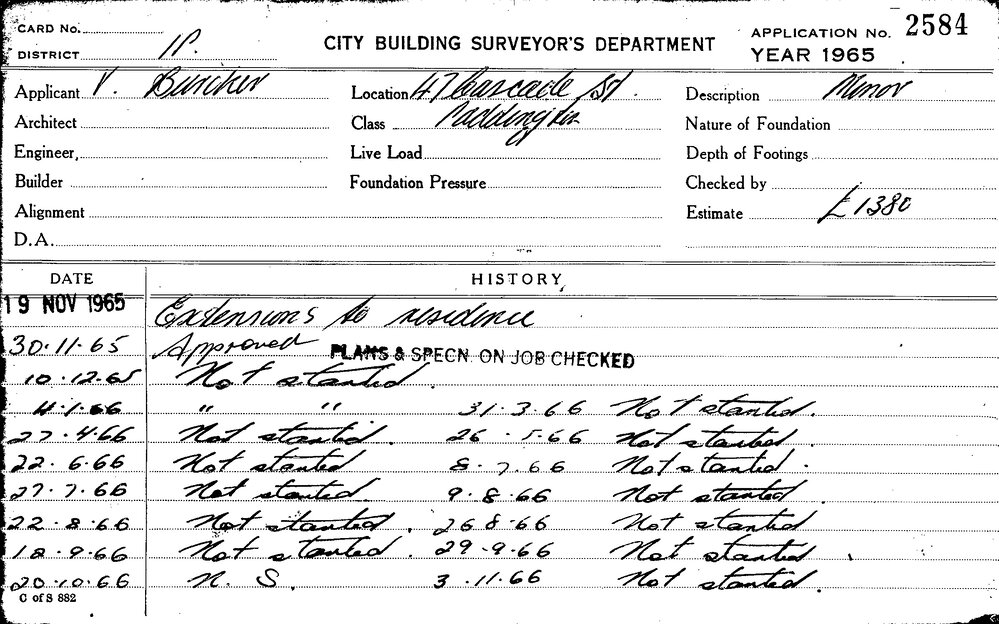 CARD No.
DISTRICT 1P.
CITY BUILDING SURVEYOR'S DEPARTMENT
APPLICATION No. 2584
YEAR 1965
Applicant V. Buncker
Location 47 Cascade St.
Description Minor
Architect
Class Paddington
Nature of Foundation
Engineer,
Live Load
Depth of Footings
Builder
Foundation Pressure
Checked by
Alignment
Estimate £1380
D.A.
DATE HISTORY
19 NOV 1965 Extensions to residence
30.11.65 Approved PLANS & SPECN. ON JOB CHECKED
10.12.65 Not started.
4.1.66 " " 31.3.66 Not started.
27.4.66 Not started. 26.5.66 Not started.
22.6.66 Not started 8.7.66 Not started.
27.7.66 Not started. 9.8.66 Not started
22.8.66 Not started. 26.8.66 Not started
18.9.66 Not started. 29.9.66 Not started
20.10.66 N. S. 3.11.66 Not started.
C of S 882